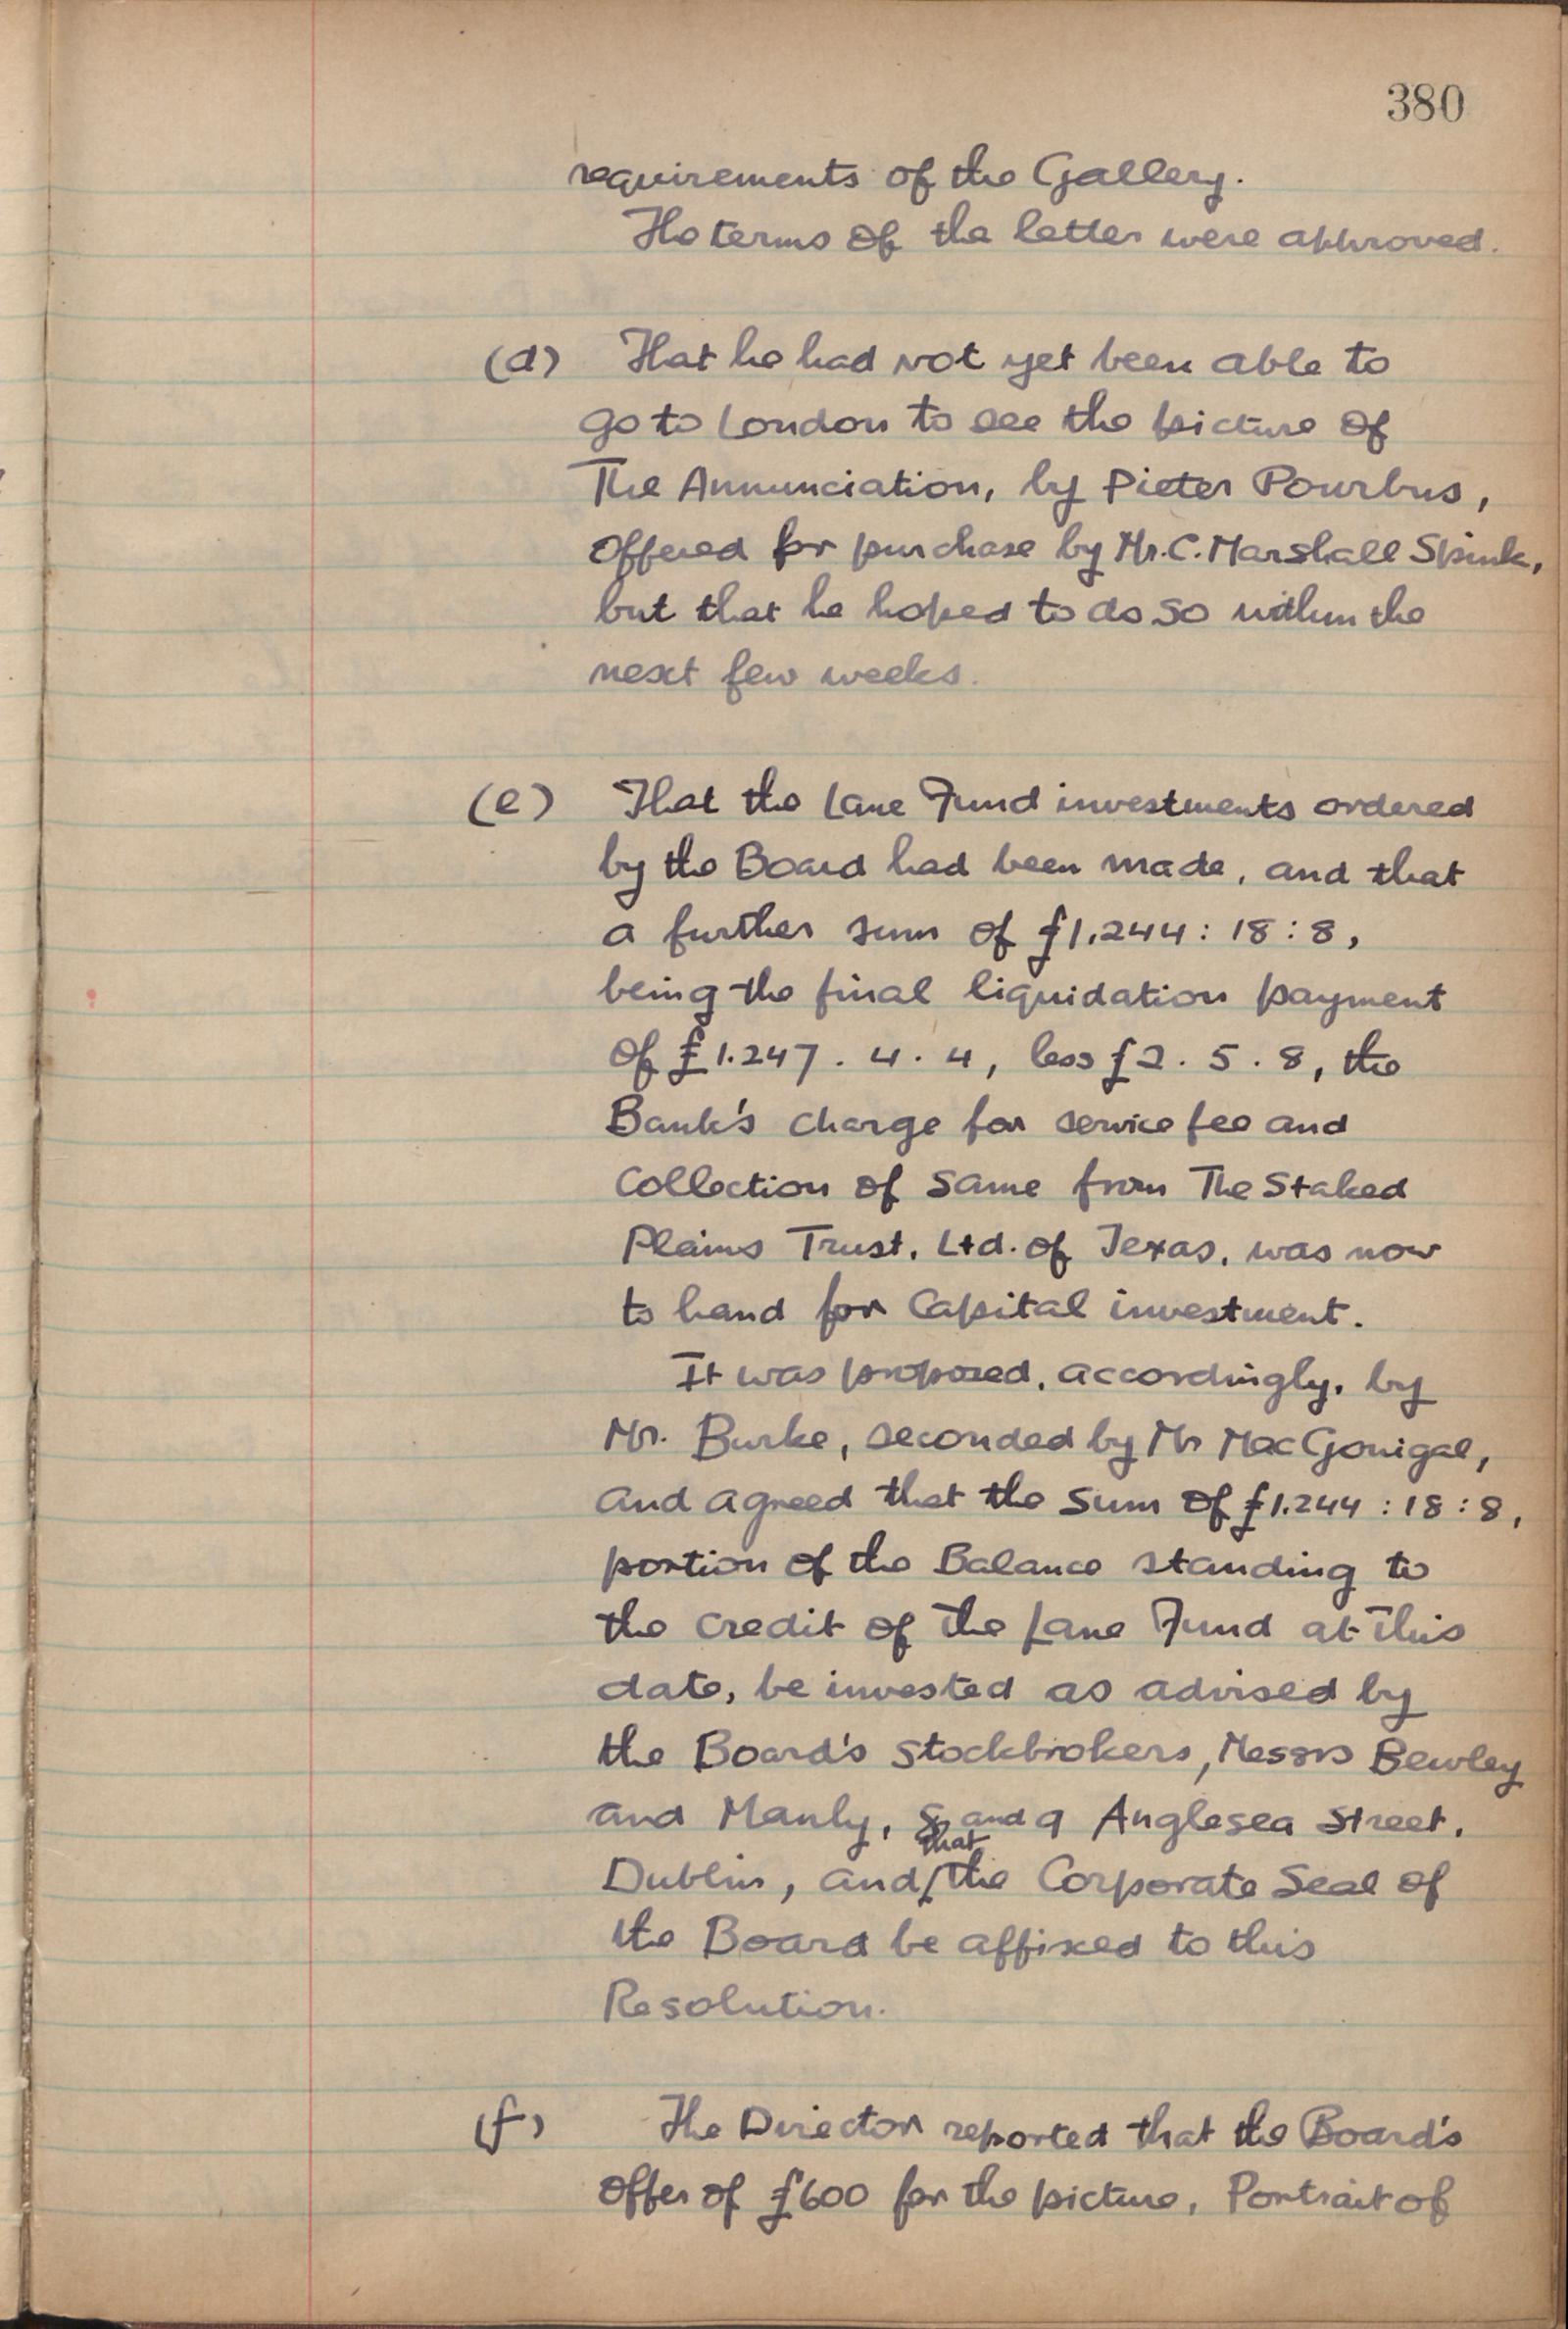 380
requirements of the Gallery.
The terms of the letter were approved.
(d) That he had not yet been able to
go to London to see the picture of
The Annunciation, by Pieter Pourbus,
offered for purchase by Mr. C. Marshall Spink,
but that he hoped to do so within the
next few weeks.
(e) That the Lane Fund investments ordered
by the Board had been made, and that
a further sum of £1.244 : 18 : 8,
being the final liquidation payment
of £1.247 . 4 . 4, less £2 . 5 . 8, the
Bank's charge for service fee and
Collection of same from The Staked
Plains Trust, Ltd. of Texas, was now
to hand for Capital investment.
It was proposed, accordingly, by
Mr. Burke, seconded by Mr MacGonigal,
and agreed that the sum of £1.244 : 18 : 8,
portion of the Balance standing to
the credit of the Lane Fund at this
date, be invested as advised by
the Board's Stockbrokers, Messrs Bewley
and Manly, 8 and 9 Anglesea Street,
that
Dublin, and the Corporate Seal of
the Board be affixed to this
Resolution.
(f) The Director reported that the Board's
offer of £600 for the picture, Portrait of